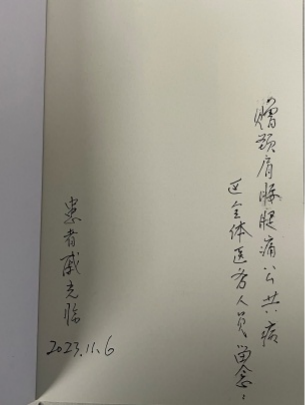 赠颈肩腰腿痛公共病
区全体医务人员留念：
患者戚克临
2023.11.6